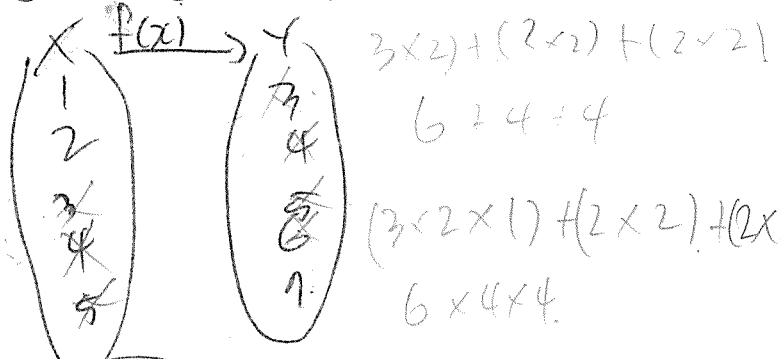 X f(x) Y
1 3
2 4
3 5
4 6
5 7
3×2)+(2×2)+(2×2)
6+4+4
(3×2×1)+(2×2)+(2×
6×4×4.